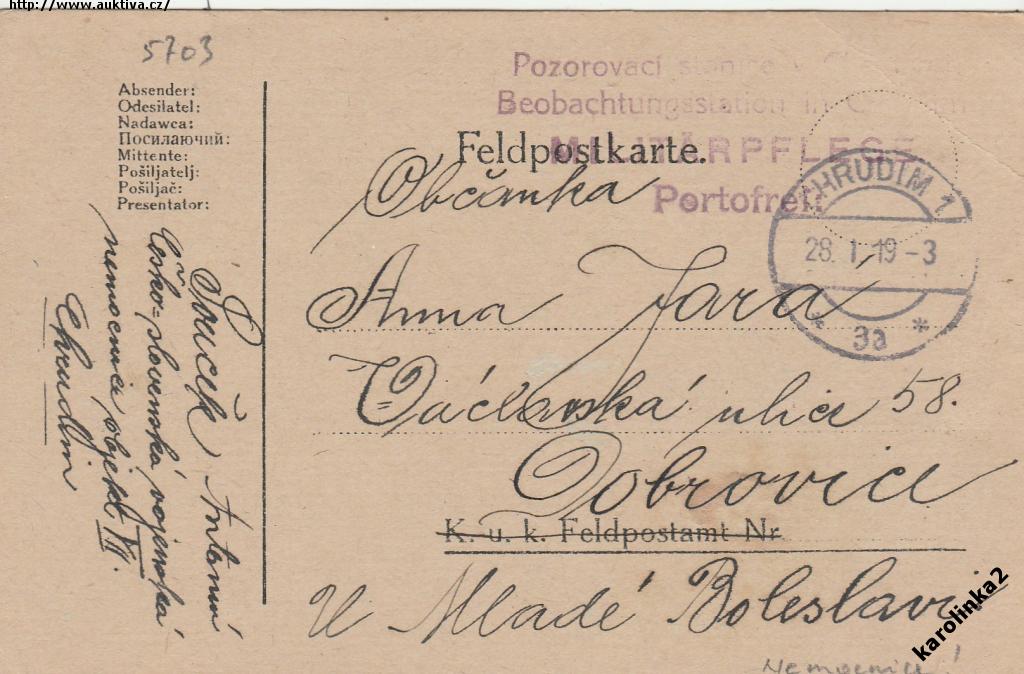 http://www.auktiva.cz/
5703
Absender:
Odesilatel:
Nadawca:
Посилаючий:
Mittente:
Pošiljatelj:
Pošiljač:
Presentator:
Souček Antonín
Česko-slovenská vojenská
nemocnice objekt VII.
Chrudim
Pozorovací stanice v
Beobachtungsstation in
MILITÄRPFLEGE
Portofrei!
Feldpostkarte.
CHRUDIM 1
28. I. 19 -3
* 3a *
Občanka
Anna Jará
Václavská ulice 58.
Dobrovice
K. u. k. Feldpostamt Nr
U Mladé Boleslavi
karolinka2
Nemocnice!